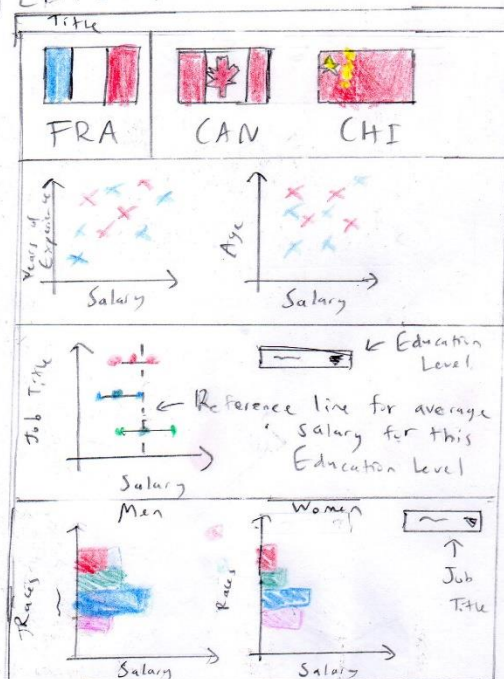 Title
FRA
CAN
CHI
Years of
Experience
Salary
Age
Salary
Job Title
Salary
Education
Level
Reference line for average
salary for this
Education Level
Men
Races
Salary
Women
Races
Salary
Job
Title